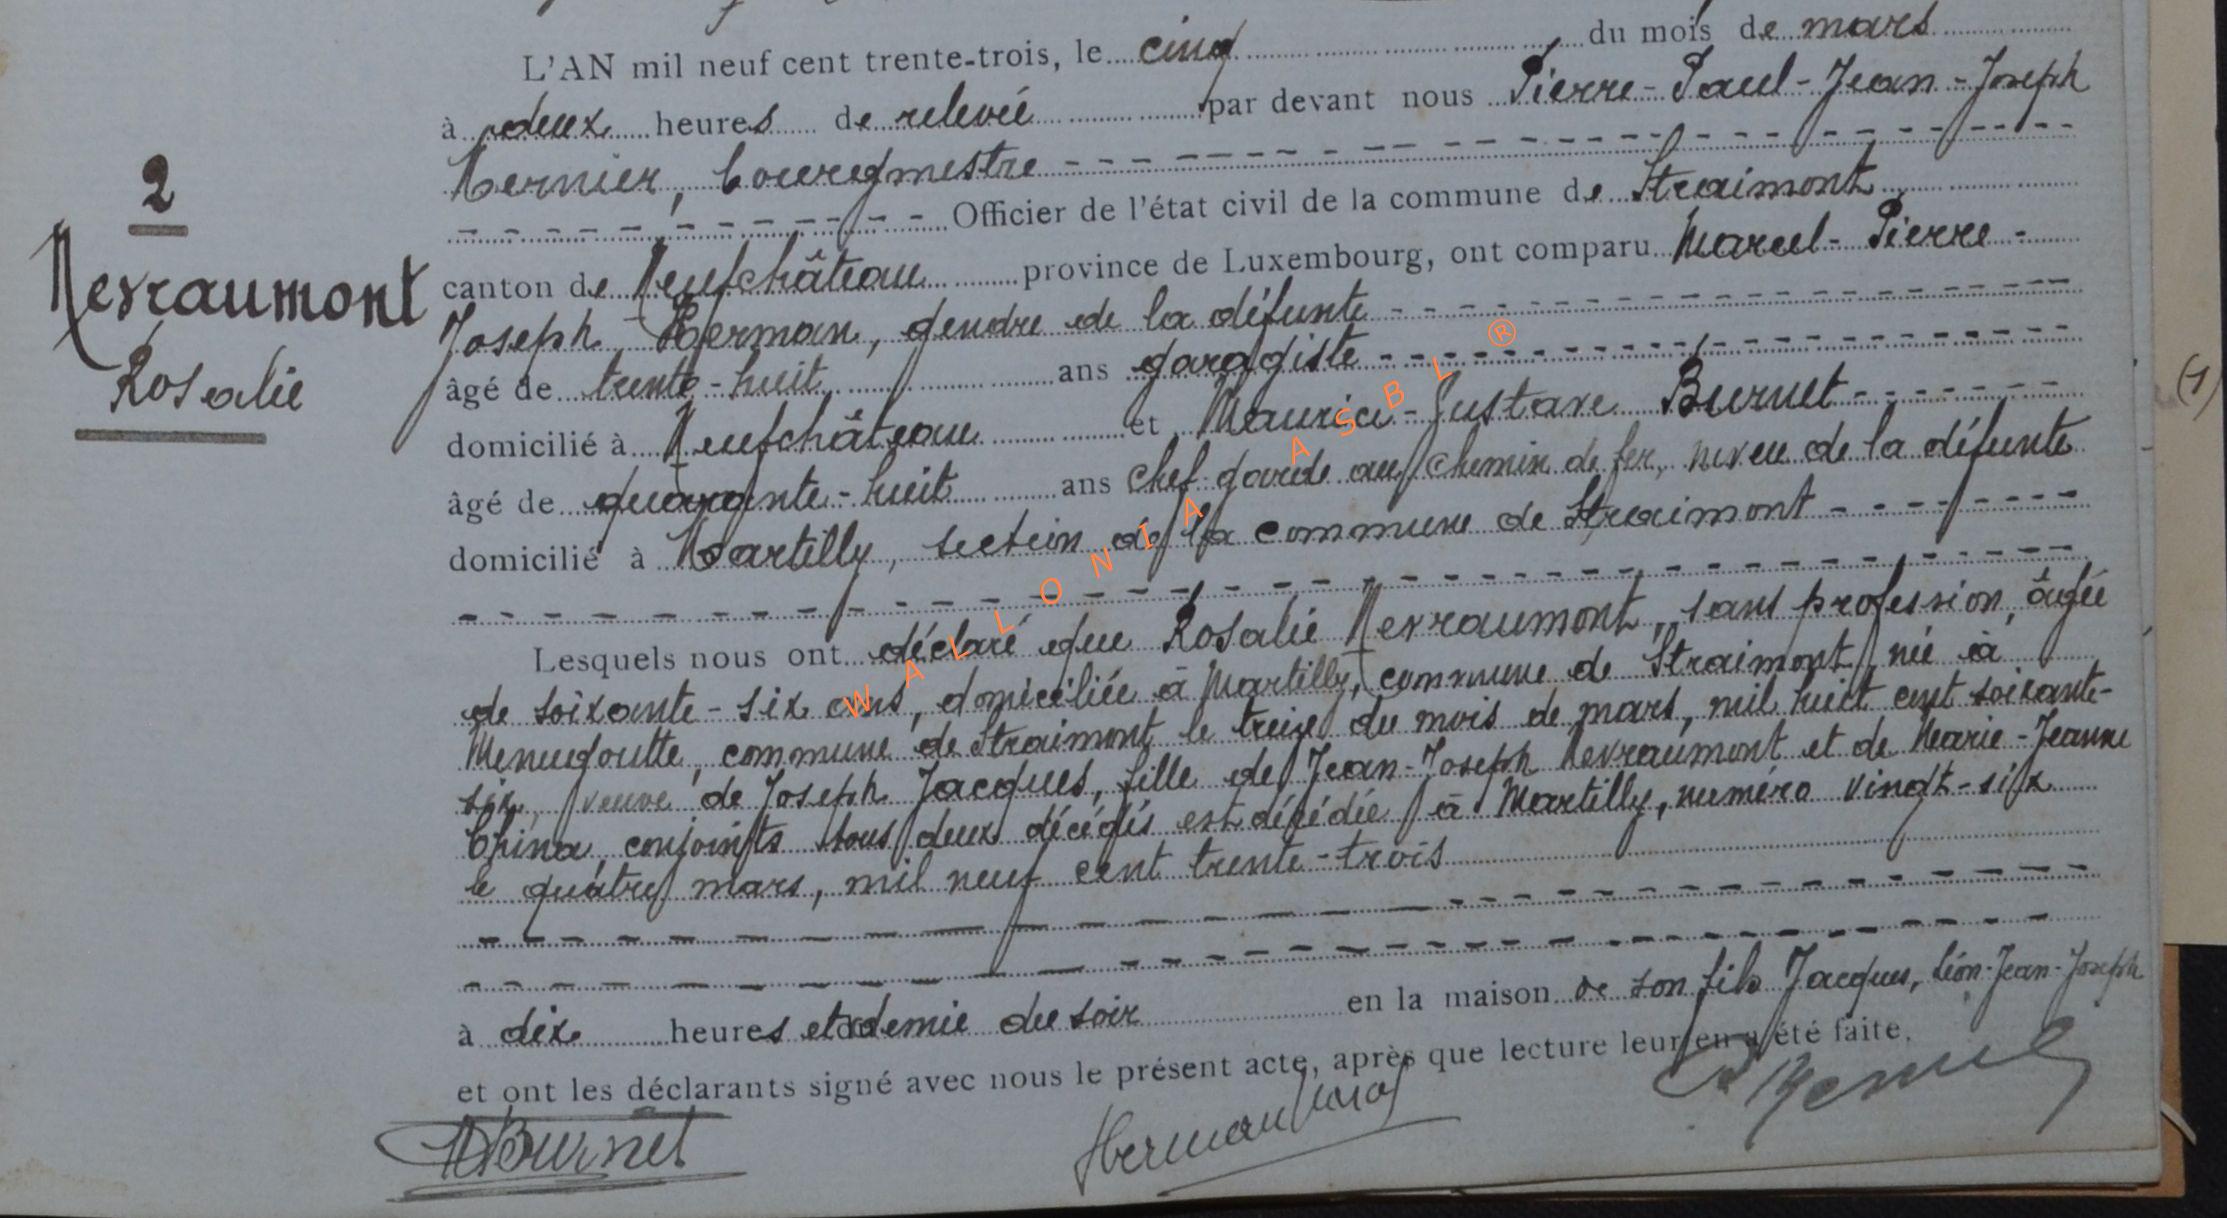 L'AN mil neuf cent trente-trois, le cinq du mois de mars
à deux heures de relevée par devant nous Pierre-Paul-Jean-Joseph
bourgmestre
2
Officier de l'état civil de la commune de Straimont
Nevraumont
canton de Neufchâteau province de Luxembourg, ont comparu Marcel-Pierre-
Joseph Herman, gendre de la défunte
Rosalie
âgé de trente-huit ans garagiste
domicilié à Neufchâteau et Maurice-Gustave Burnet
(1)
âgé de quarante-huit ans chef-garde au chemin de fer, neveu de la défunte
domicilié à Martilly, section de la commune de Straimont
Lesquels nous ont déclaré que Rosalie Nevraumont, sans profession, âgée
de soixante-six ans, domiciliée à Martilly, commune de Straimont, née à
Menugoutte, commune de Straimont le treize du mois de mars, mil huit cent soixante-
six, veuve de Joseph Jacques, fille de Jean-Joseph Nevraumont et de Marie-Jeanne
China, conjoints tous deux décédés est décédée à Martilly, numéro vingt-six
le quatre mars, mil neuf cent trente-trois
à dix heures et demie du soir en la maison de son fils Jacques, Léon-Jean-Joseph
et ont les déclarants signé avec nous le présent acte, après que lecture leur en a été faite.
MBurnet Herman
WALLONIA ASBL ®